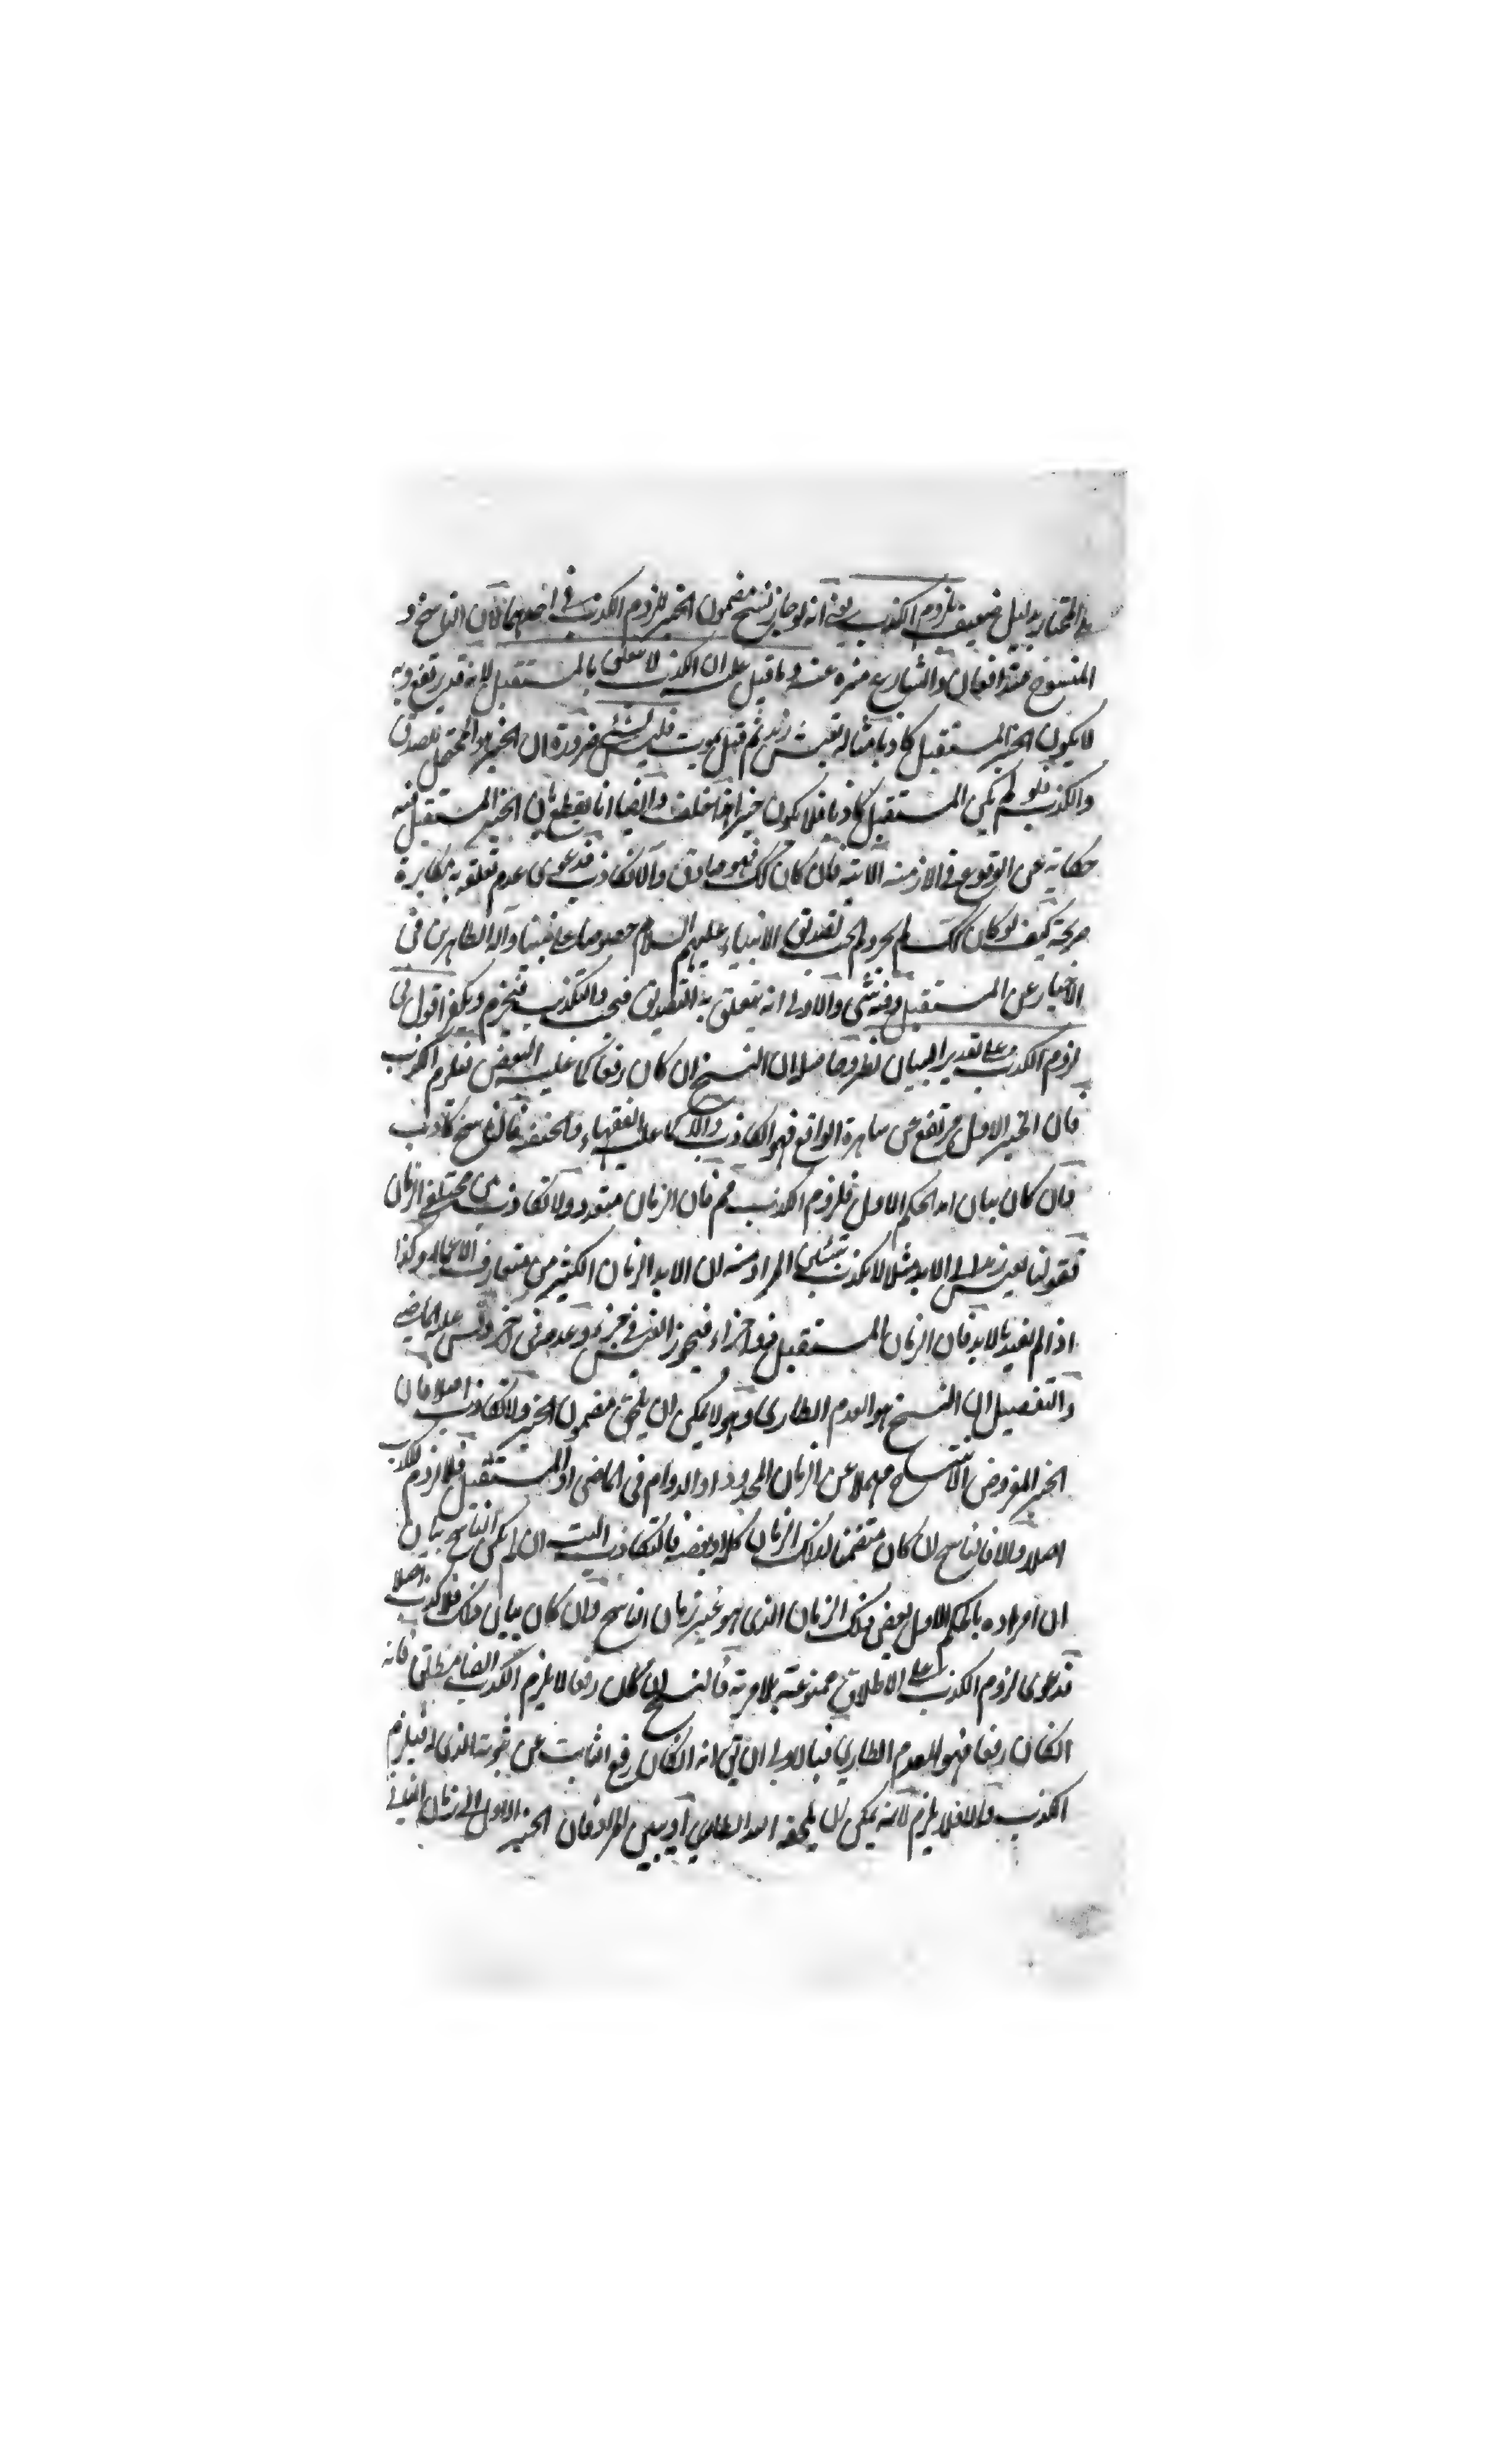 المختار بدليل ضعيف يلزم الكذب يعني انه لو جاز نسخ مضمون الخبر للزم الكذب في احدهما لان الناسخ و
المنسوخ متدافعان والشارع منزه عنه وما قيل عليه ان الكذب لا يتعلق بالمستقبل لانه قد يرتفع وبه
لا يكون الخبر المستقبل كاذبا مثاله تعيش زيد ثم قيل يموت فليس بشئ ضرورة ان الخبر هو المحتمل للصدق
والكذب فلو لم يكن المستقبل كاذبا فلا يكون خبرا هذا خلف وايضا انا نقطع بان الخبر المستقبل فيه
حكاية عن الوقوع في الازمنة الاتية فان كان كك فهو صادق والا فكاذب فدعوى عدم تعلقه به مكابرة
صريحة كيف لو كان كك لم يجب تصديق الانبياء عليهم السلام خصوصا على نبينا وآله الطاهرين في
الاخبار عن المستقبل وفيه شئ والاولى انه يتعلق به التصديق فيجب والتكذيب فيحرم ويكفر اقول في
لزوم الكذب على تقدير البيان نظر وحاصله ان النسخ ان كان رفعا كما عليه البعض فلزم الكذب
فان الخبر الاول مرتفع عن ساهرة الواقع فهو الكاذب والا كما عليه الفقهاء والحنفية فالناسخ كاذب
فان كان بيان امد الحكم الاول فلزوم الكذب مم فان الزمان متعدد ولا تكاذب في مختلف الزمان
فقولنا يعيش زيد الى الابد مثلا لا يكذب المراد منه ان الابد الزمان الكثير من متعارف وكذا
اذا لم يقيد بالابد فان الزمان المستقبل ذو اجزاء فيجوز العيش في جزء وعدمه في جزء وقس عليه الماضي
والتفصيل ان النسخ هو العدم الطاري وهو لا يمكن ان يلحق مضمون الخبر ولا تكاذب اصلا فان
الخبر المفروض الانتساخ مهملا عن الزمان المحدود او الدوام في الماضي او المستقبل فلا لزوم للكذب
اصلا والا فالناسخ ان كان متضمنا لذلك الزمان كله او بعضه فالتكاذب البتة ان لم يكن الناسخ بيان
ان المراد بالحكم الاول بعض ذلك الزمان الذي هو غير زمان الناسخ وان كان بيان ذلك فلا كذب اصلا
فدعوى لزوم الكذب على الاطلاق ممنوعة بلا مرية فالنسخ ان كان رفعا لا يلزم الكذب ايضا مطلقا فانه
الكان رفعا فهو العدم الطاري فبالاولى ان يق انه الكان رفع الثابت عن ثبوته الذي له فيلزم
الكذب والا فلا يلزم لانه يمكن ان يلحقه العدم الطاري او يبين المراد فان الخبر الاول الى زمان الثاني